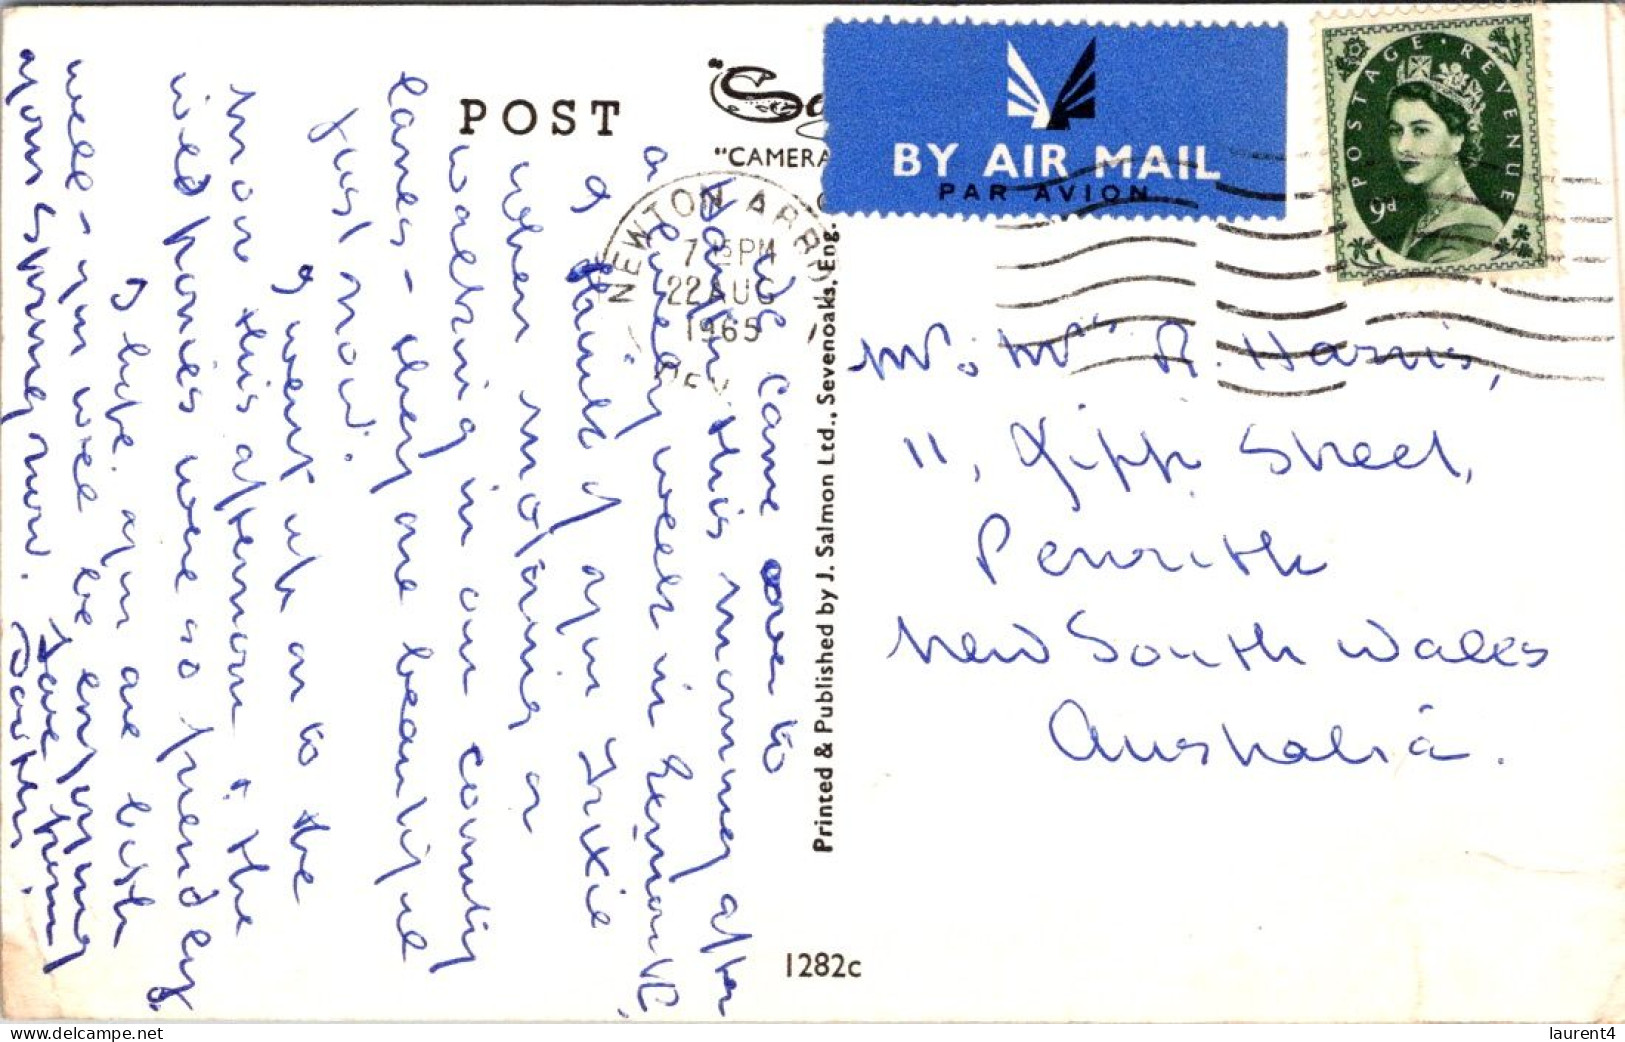 POST
"CAMERA
BY AIR MAIL
PAR AVION
POSTAGE REVENUE
9d
NEWTON ABB
7 15 PM
22 AUG
1965
DEV
We came over to
this morning after
a lovely week in Exmouth.
I think of you & Trixie
when motoring or
walking in our country
lanes - they are beautiful
just now.
I went up on to the
moor this afternoon & the
wild ponies were so friendly.
I hope you are both
well - you will be enjoying
your spring now.
Love from
Printed & Published by J. Salmon Ltd., Sevenoaks, Eng.
Mr. Mrs R. Harris,
11, Gipp Street,
Penrith
New South Wales
Australia.
1282c
laurent4